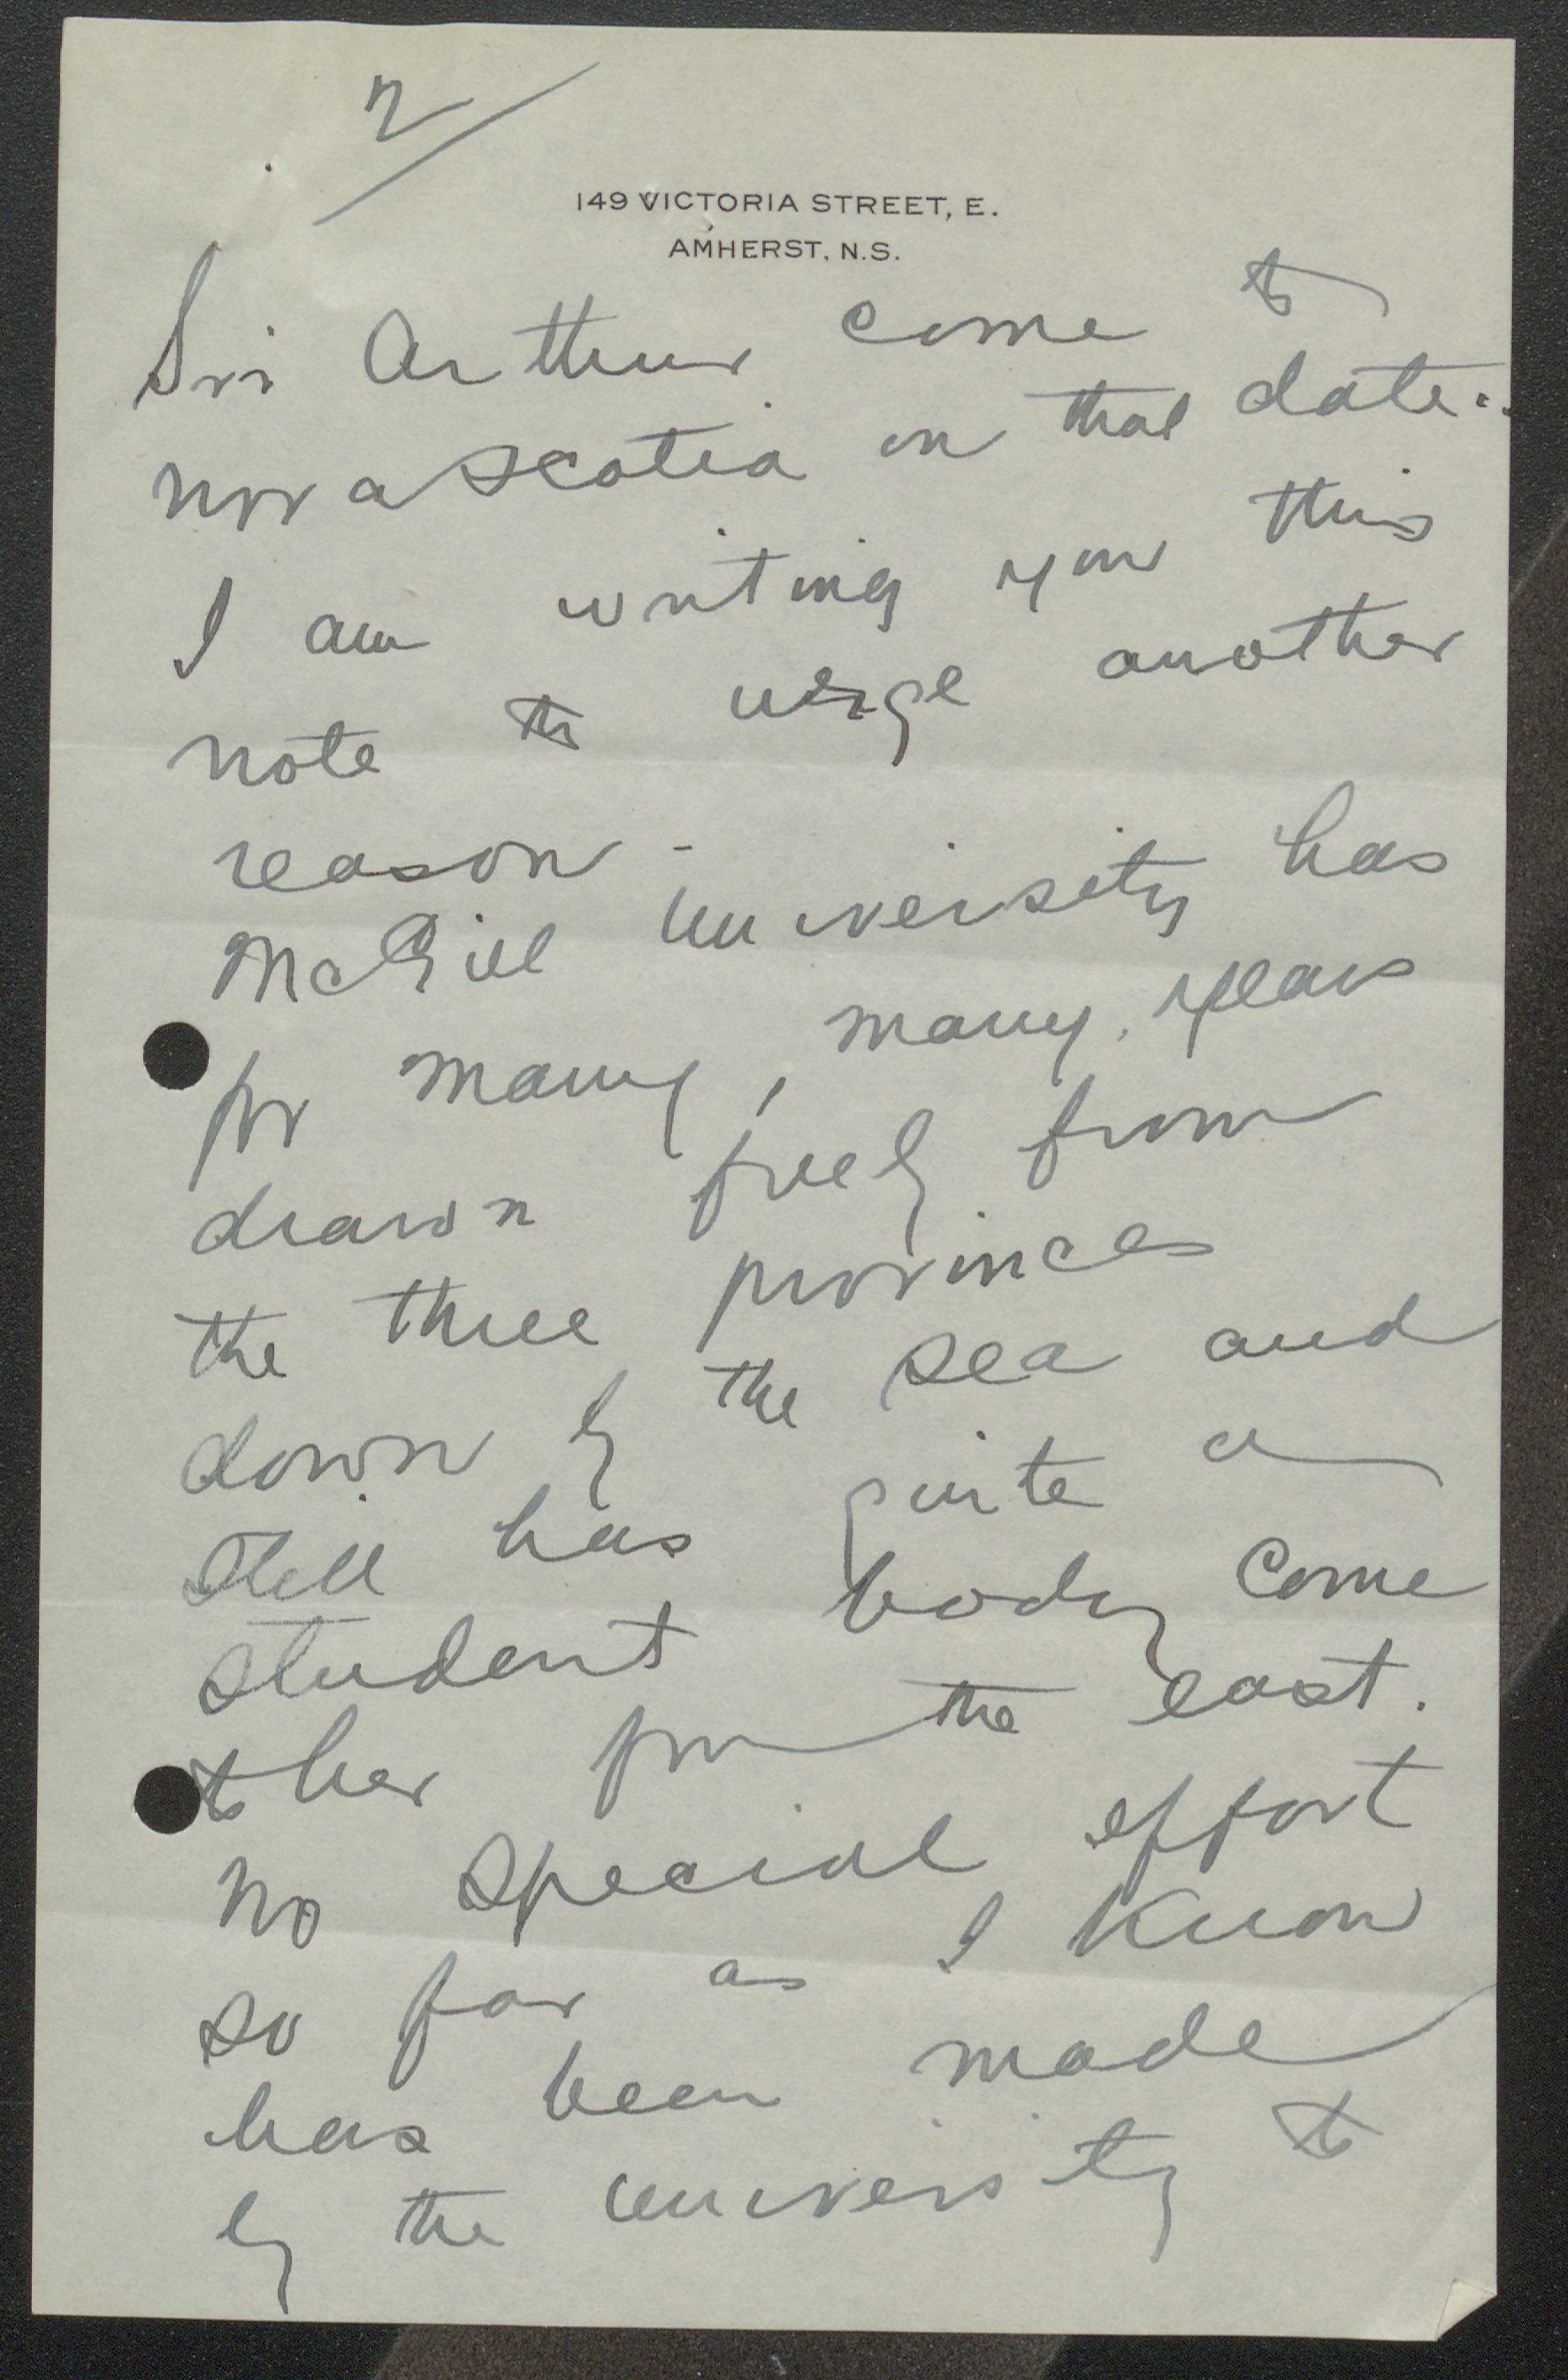 2/
149 VICTORIA STREET, E.
AMHERST, N.S.
Sir Arthur come to
Nova Scotia on that date.
I am writing you this
note to urge another
reason -
McGill University has
for many, many, years
drawn freely from
the three provinces
down by the sea and
still has quite a
student body come
to her from the east.
No special effort
so far as I know
has been made
by the University to